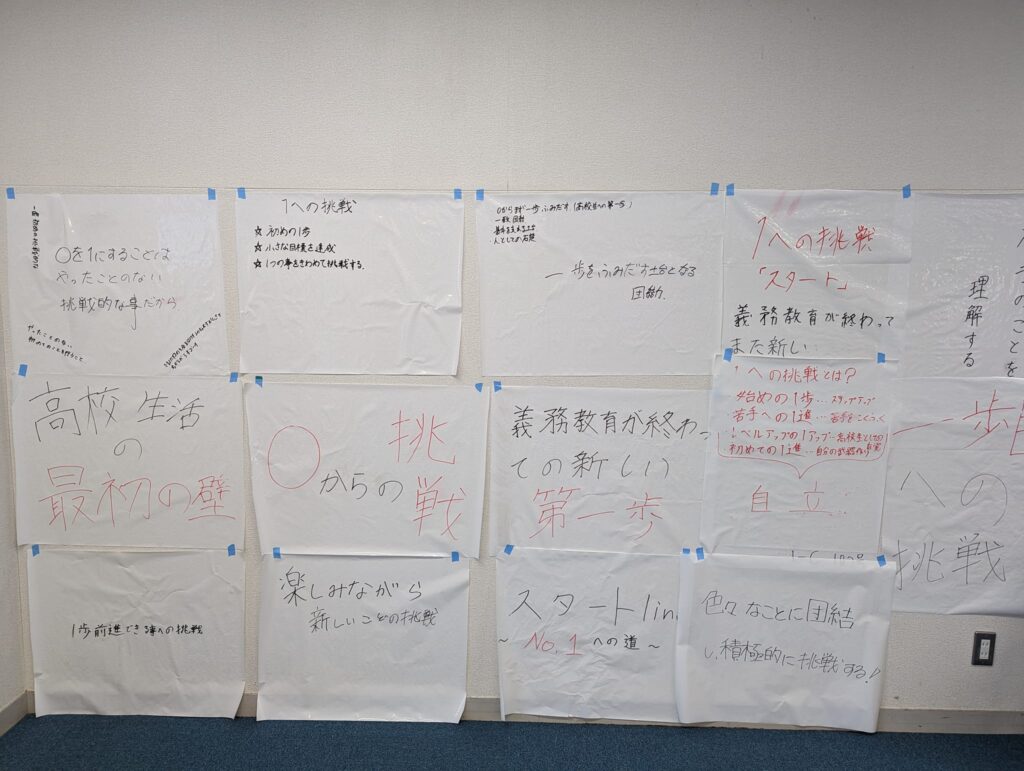 0を1にすることは
やったことのない
挑戦的な事だから
やったことのない
初めてのことを行うこと
1への挑戦
☆ 初めの1歩
☆ 小さな目標を達成
☆ 1つの事をきわめて挑戦する
0からまず一歩ふみだす(高校生への第一歩)
一致団結
人としての右発
一歩をふみだす土台となる
団動
1への挑戦
「スタート」
義務教育が終わって
また新しい
のことを
理解する
高校生活
の
最初の壁
〇からの挑戦
義務教育が終わっ
ての新しい
第一歩
1への挑戦とは?
始めの1歩…ステップアップ
苦手への1進…苦手をこくふく
レベルアップの1アップ…高校生としての自覚
初めての1進
自立
一歩
への
挑戦
1歩前進できる事への挑戦
楽しみながら
新しいことの挑戦
スタートlin
~No.1への道~
色々なことに団結
し、積極的に挑戦する!